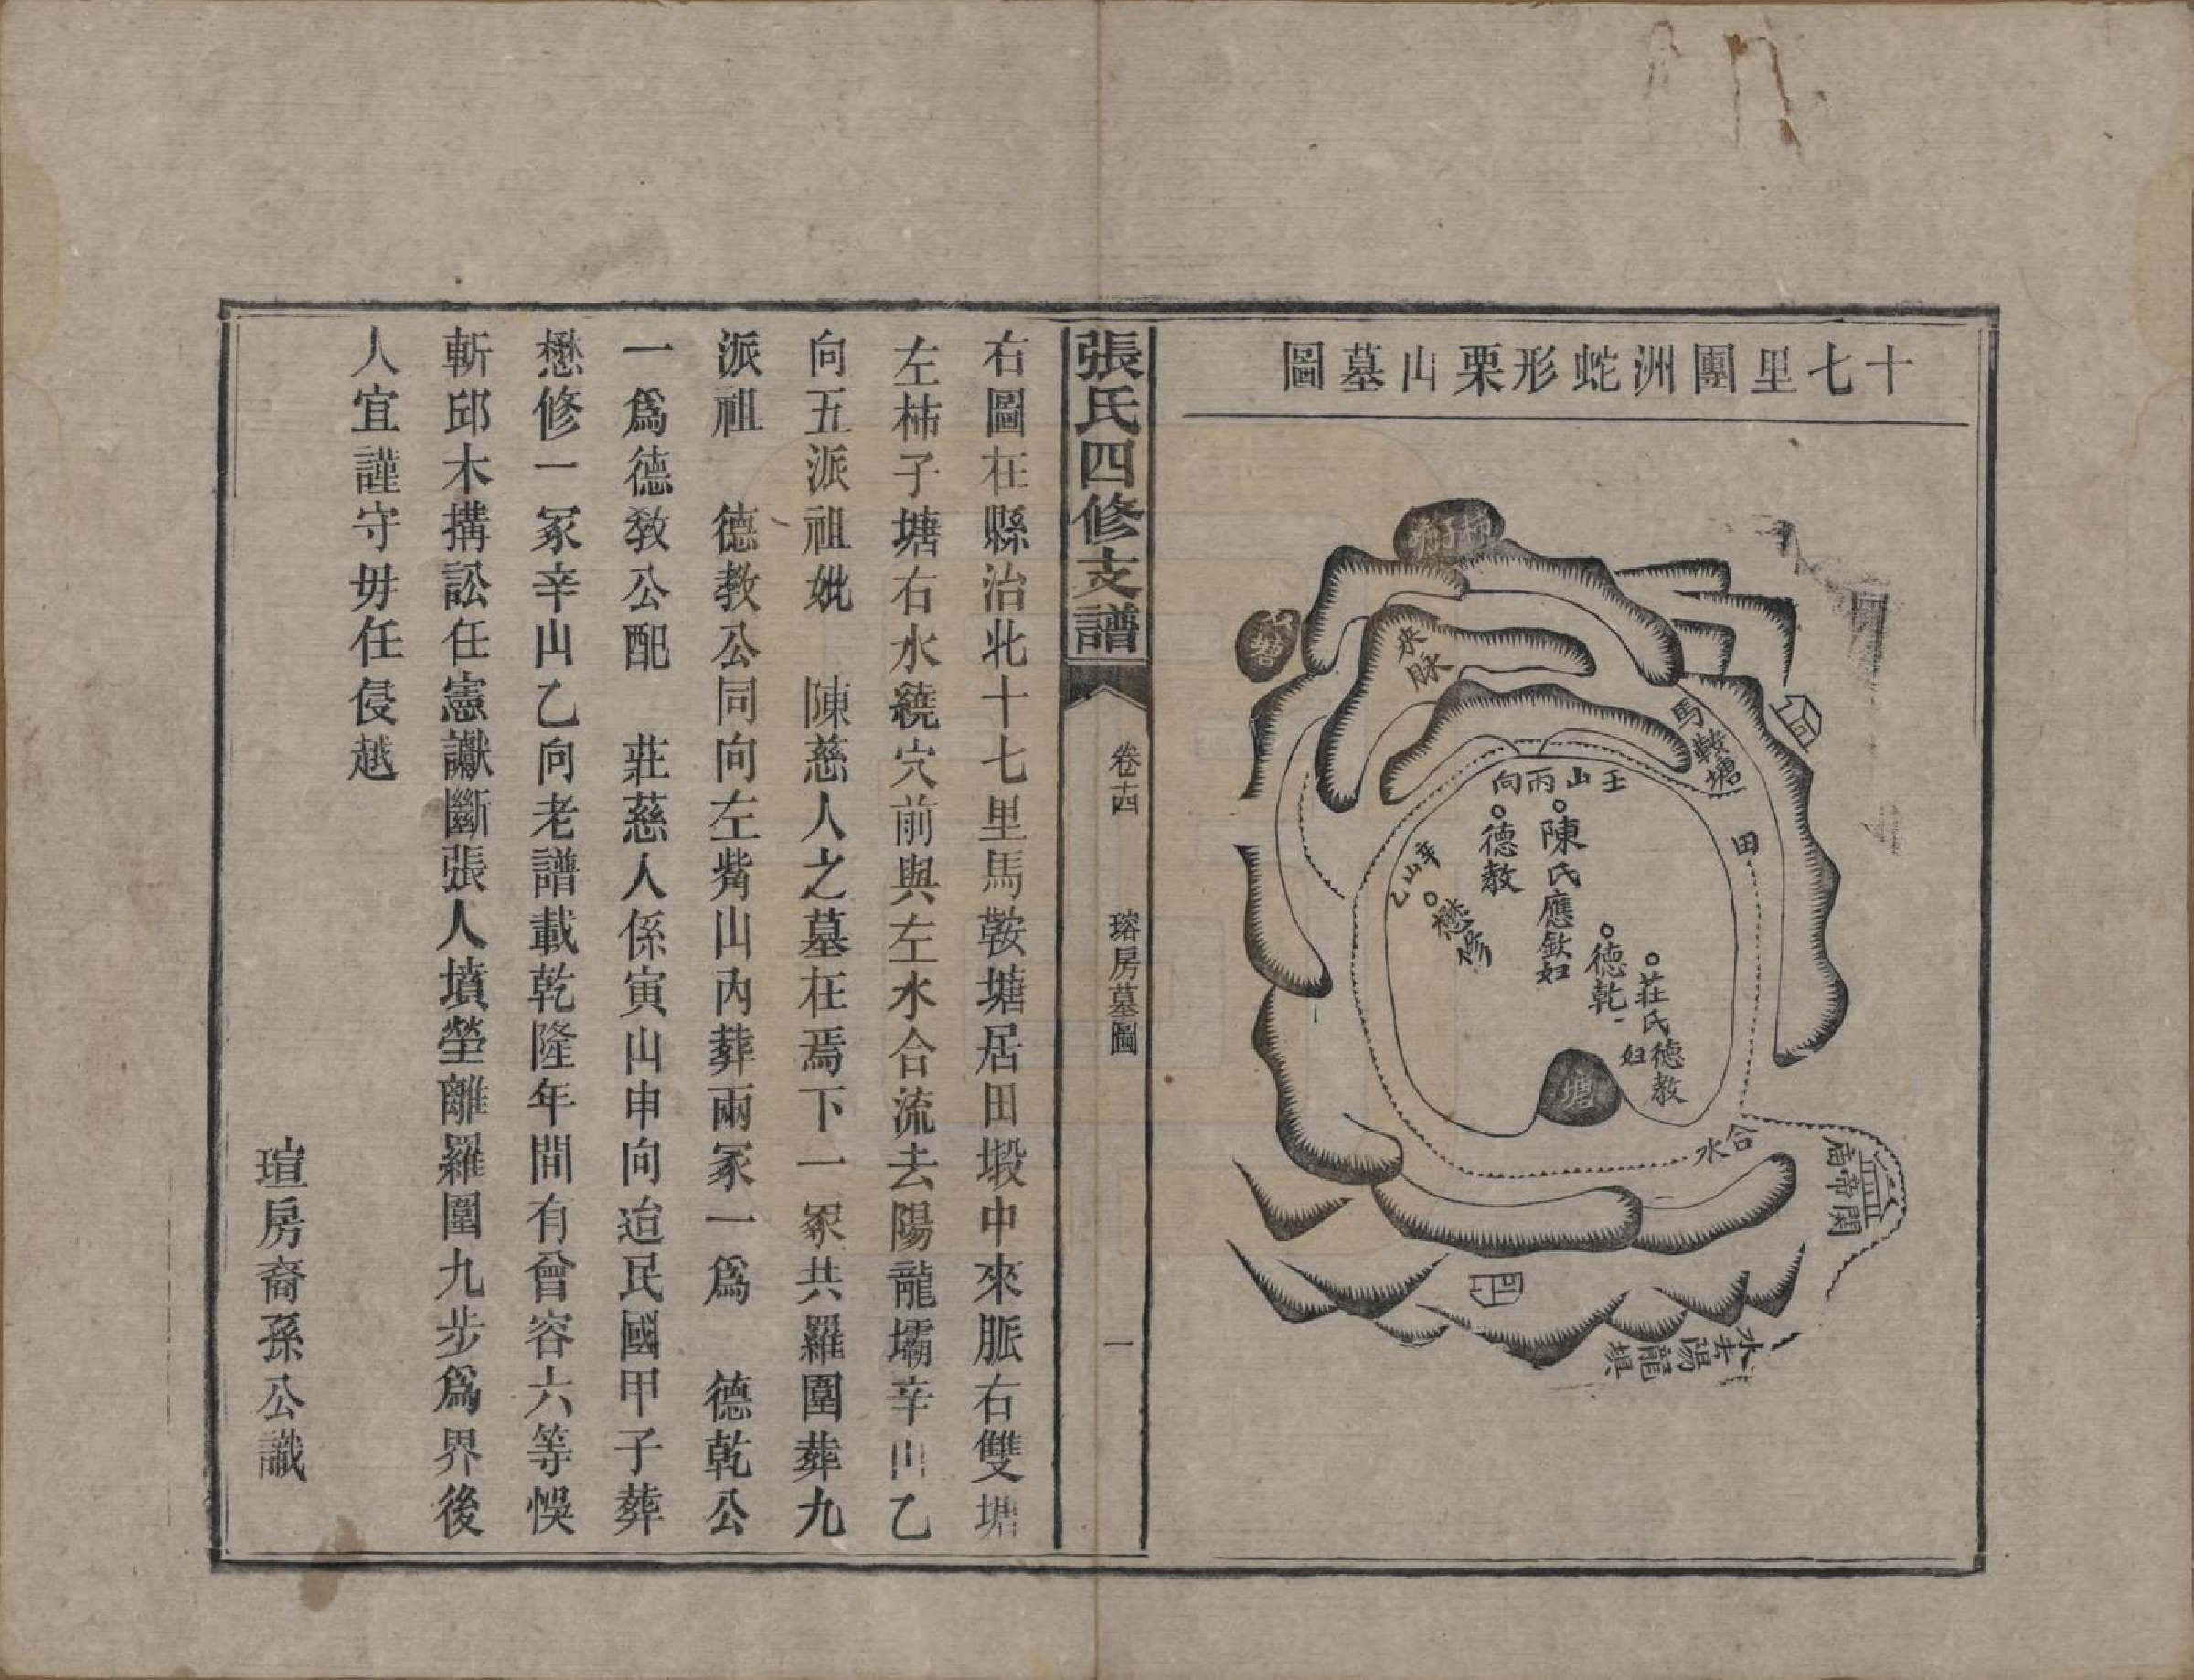 十七里團洲蛇形栗山墓圖
柿子塘
双塘
來脉
馬鞍塘
壬山丙向
田
陳氏應欽妃
德教
辛山乙
懋修
德乾
莊氏德教妃
塘
合水
關帝庙
水去陽龍壩
張氏四修支譜
卷十四
瑢房墓圖
一
右圖在縣治北十七里馬鞍塘居田塅中來脈右雙塘
左柿子塘右水繞穴前與左水合流去陽龍壩辛山乙
向五派祖妣　陳慈人之墓在焉下一冢共羅圍葬九
派祖　德教公同向左觜山內葬兩冢一爲　德乾公
一爲德教公配　莊慈人係寅山申向迨民國甲子葬
懋修一冢辛山乙向老譜載乾隆年間有曾容六等悞
斬邱木搆訟任憲讞斷張人墳塋離羅圍九步爲界後
人宜謹守毋任侵越
瑄房裔孫公識